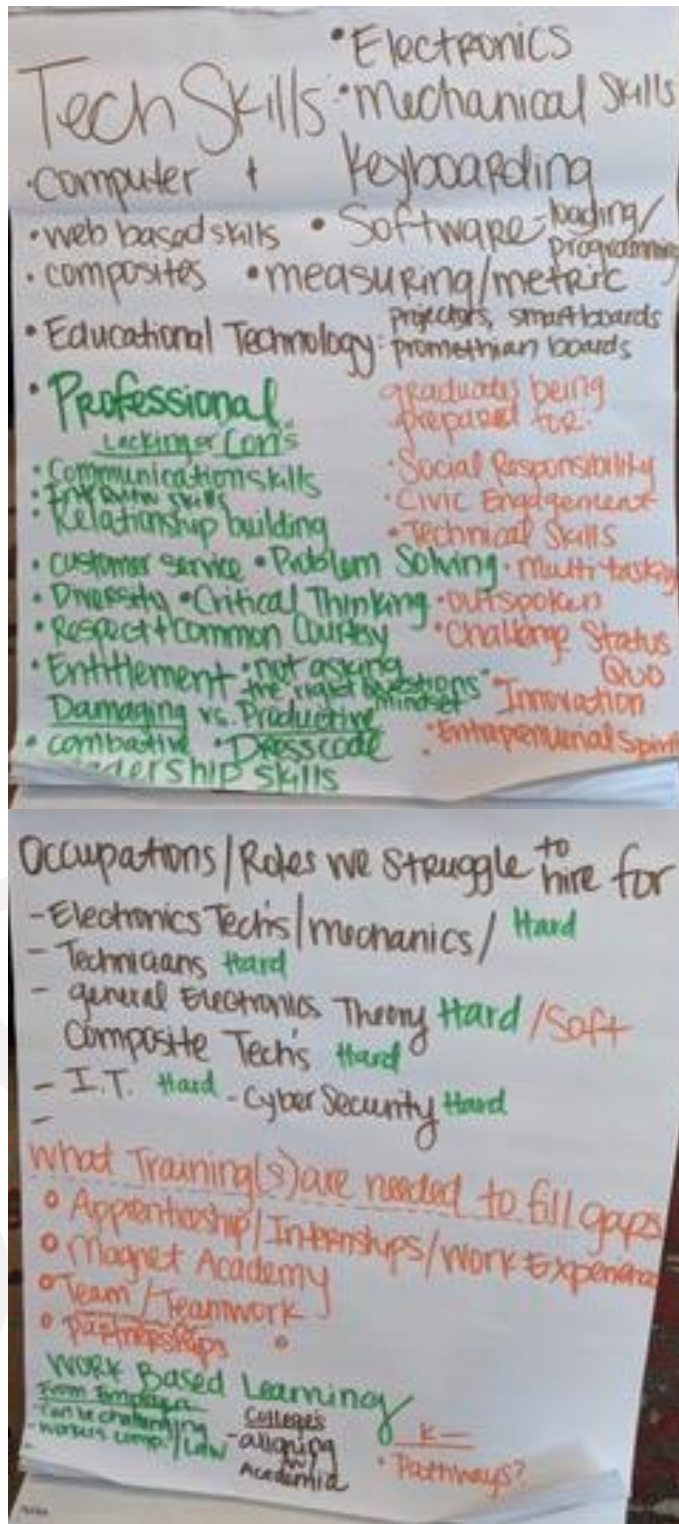 Tech Skills
• Electronics
• Mechanical Skills
• Computer + Keyboarding
• web based skills
• Software - loading/
programming
• composites
• measuring/metric
• Educational Technology: projectors, smartboards
promethian boards
• Professional
Lacking or Con's
• Communication skills
skills
• Relationship building
• customer service • Problem Solving
• Diversity • Critical Thinking
• Respect + Common Courtesy
• Entitlement • not asking
the right questions
mindset
Damaging vs. Productive
• combative • Dress code
Leadership skills
graduates being
prepared for:
• Social Responsibility
• Civic Engagement
• Technical Skills
• Multi tasking
• outspoken
• Challenge Status
Quo
• Innovation
• Spirit
Occupations/Roles we struggle to hire for
- Electronics Tech's/mechanics/ Hard
- Technicians Hard
- general Electronics Theory Hard / Soft
Composite Tech's Hard
- I.T. Hard - Cyber Security Hard
-
What Training(s) are needed to fill gaps
o Apprenticeship/Internships/Work Experience
o Magnet Academy
o Team/Teamwork
o Partnerships o
Work Based Learning
From
- Can be challenging
- Workers comp./Law
-
College's
- aligning
w/
Academia
K—
• Pathways?